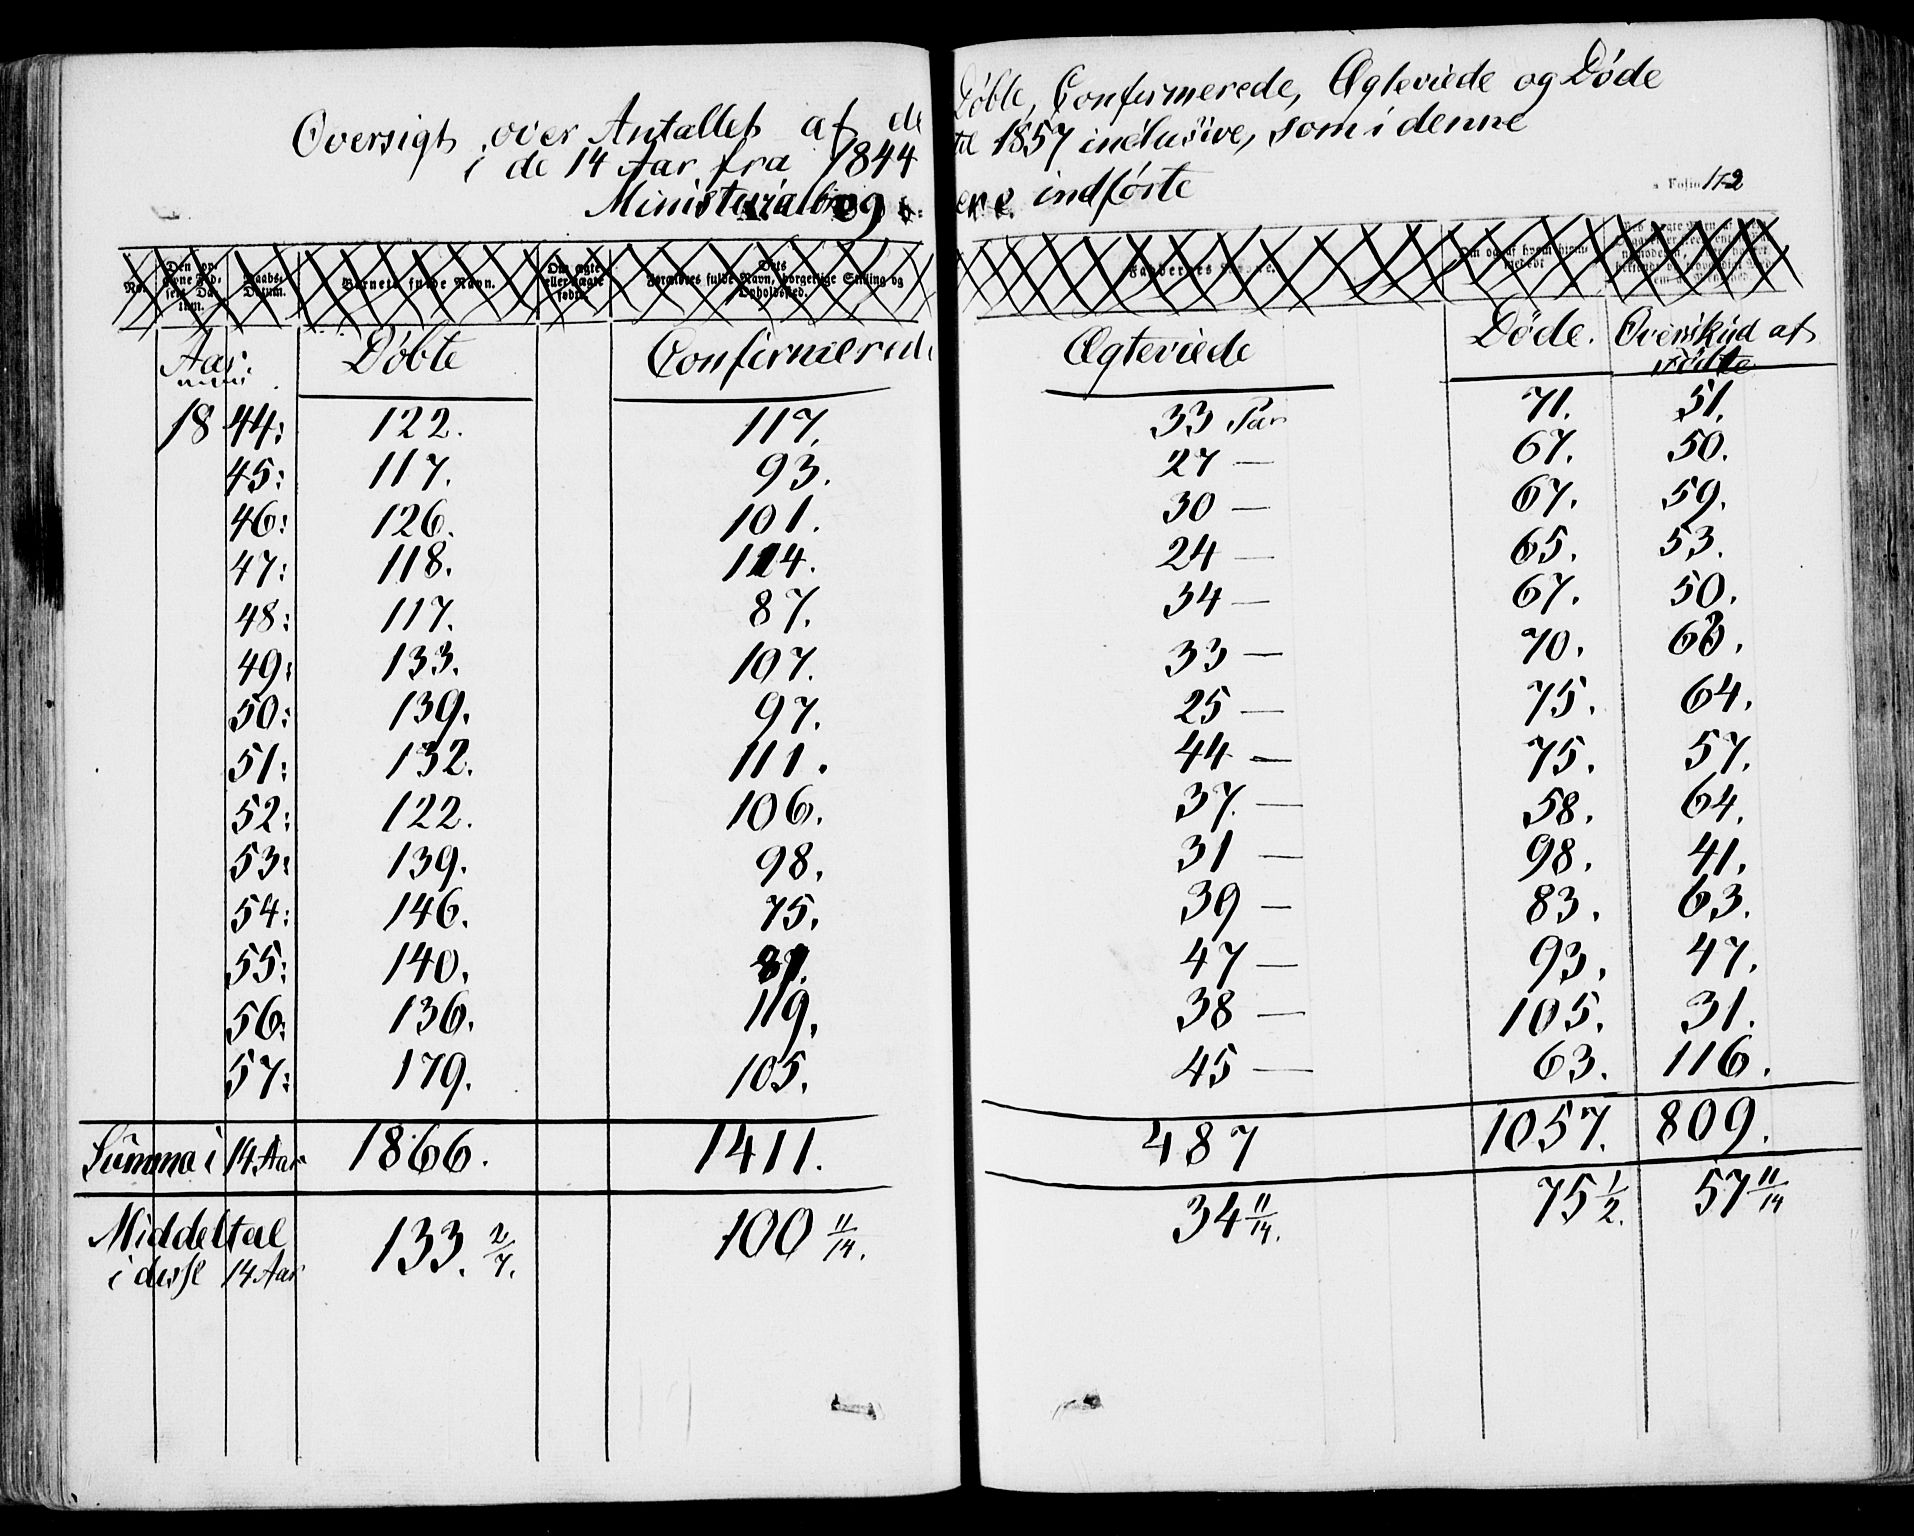 Oversigt over Antallet af de Døbte, Confirmerede, Ægteviede og Døde
i de 14 Aar fra 1844 til 1857 inclusive, som i denne
Ministerialbog ere indførte
Folio 112
No.
Daabs-Datum.
Barnets fulde Navn.
Om ægte eller uægte født.
Forældres fulde Navn, borgerlige Stilling og Opholdssted.
Aar. Døbte Confirmerede Ægteviede Døde. Overskud af Fødte
1844: 122. 117. 33 Par 71. 51.
45: 117. 93. 27 — 67. 50.
46: 126. 101. 30 — 67. 59.
47: 118. 114. 24 — 65. 53.
48: 117. 87. 34 — 67. 50.
49: 133. 107. 33 — 70. 63.
50: 139. 97. 25 — 75. 64.
51: 132. 111. 44 — 75. 57.
52: 122. 106. 37. — 58. 64.
53: 139. 98. 31 — 98. 41.
54: 146. 75. 39 — 83. 63.
55: 140. 81. 47 — 93. 47.
56: 136. 119. 38 — 105. 31.
57: 179. 105. 45 — 63. 116.
Summa i 14 Aar 1866. 1411. 487 1057. 809.
Middeltal 133. 2/7. 100 11/14. 34 11/14. 75 1/2. 57 11/14
i disse 14 Aar